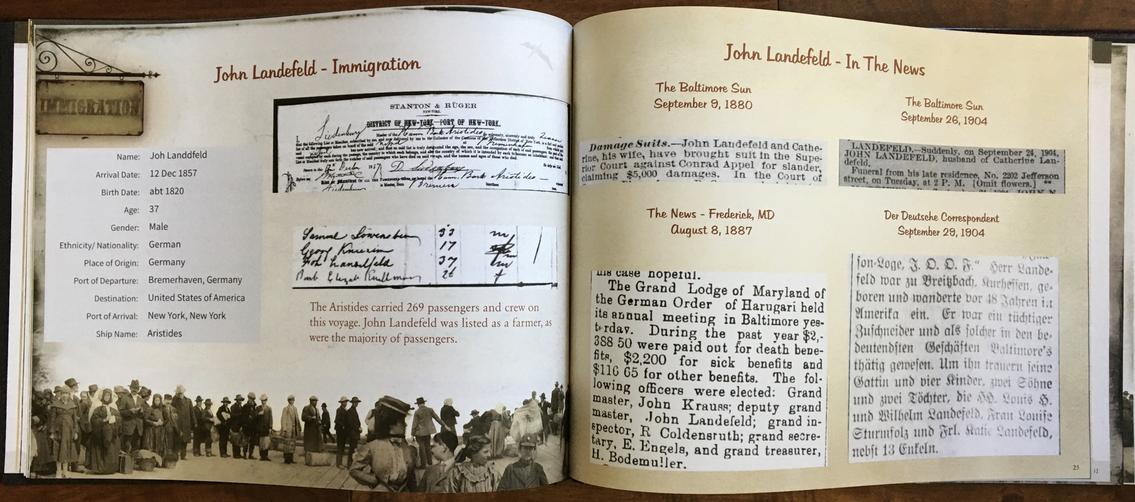 John Landefeld - Immigration
IMMIGRATION
STANTON & RÜGER
NEW-YORK.
DISTRICT OF NEW-YORK—PORT OF NEW-YORK.
Name: Joh Landdfeld
Arrival Date: 12 Dec 1857
Birth Date: abt 1820
Age: 37
Gender: Male
Ethnicity/ Nationality: German
Place of Origin: Germany
Port of Departure: Bremerhaven, Germany
Destination: United States of America
Port of Arrival: New York, New York
Ship Name: Aristides
37
The Aristides carried 269 passengers and crew on
this voyage. John Landefeld was listed as a farmer, as
were the majority of passengers.
John Landefeld - In The News
The Baltimore Sun
September 9, 1880
Damage Suits.—John Landefeld and Cathe-
rine, his wife, have brought suit in the Supe-
rior Court against Conrad Appel for slander,
claiming $5,000 damages. In the Court of
The Baltimore Sun
September 26, 1904
LANDEFELD.—Suddenly, on September 24, 1904,
JOHN LANDEFELD, husband of Catherine Lan-
defeld.
Funeral from his late residence, No. 2202 Jefferson
street, on Tuesday, at 2 P. M. [Omit flowers.]
The News - Frederick, MD
August 8, 1887
his case hopeful.
The Grand Lodge of Maryland of
the German Order of Harugari held
its annual meeting in Baltimore yes-
terday. During the past year $2,-
388 50 were paid out for death bene-
fits, $2,200 for sick benefits and
$116 65 for other benefits. The fol-
lowing officers were elected: Grand
master, John Krauss; deputy grand
master, John Landefeld; grand in-
spector, R Coldensruth; grand secre-
tary, E. Engels, and grand treasurer,
H. Bodemuller.
Der Deutsche Correspondent
September 29, 1904
son-Loge, J. O. O. F." Herr Lande-
feld war zu Breitzbach, Kurhessen, ge-
boren und wanderte vor 48 Jahren in
Amerika ein. Er war ein tüchtiger
Zuschneider und als solcher in den be-
deutendsten Geschäften Baltimore's
thätig gewesen. Um ihn trauern seine
Gattin und vier Kinder, zwei Söhne
und zwei Töchter, die HH. Louis H.
und Wilhelm Landefeld, Frau Louise
Sturmfolz und Frl. Katie Landefeld,
nebst 13 Enkeln.
25